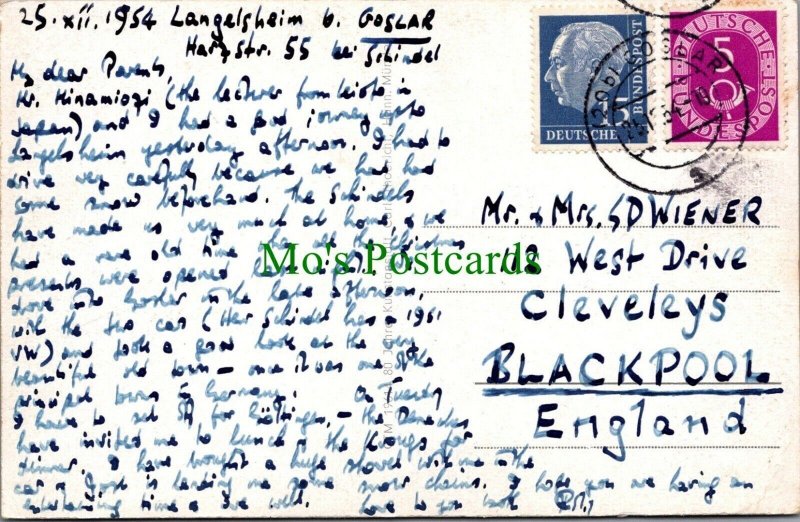 25.XII.1954 Langelsheim b. GOSLAR
Harzstr. 55 bei Schindel
My dear Parents,
Mr. Minamiogi (the lecturer from
Japan) and I had a good journey
Langelsheim yesterday afternoon. I had to
drive very carefully because we had had
some snow beforehand. The Schindels
have made us very much at home & we
had a rare old time when all the Christmas
presents were opened
drove into Goslar in the late afternoon,
with the two cars (Herr Schindel has a 1951
VW) and took a good look at the very
beautiful old town – once it was one of the
principal towns in Germany. On Tuesday
I have to set off for Göttingen, – the
have invited me to lunch & the Krongs for
dinner. I have brought a huge shovel with me in the
car & is lending me some snow chains. I hope you are having an
entertaining time & are well. love to you both
DEUTSCHE BUNDESPOST
15
DEUTSCHE BUNDESPOST
5
GOSLAR
Mr. & Mrs. G D WIENER
12 West Drive
Cleveleys
BLACKPOOL
England
Mo's Postcards